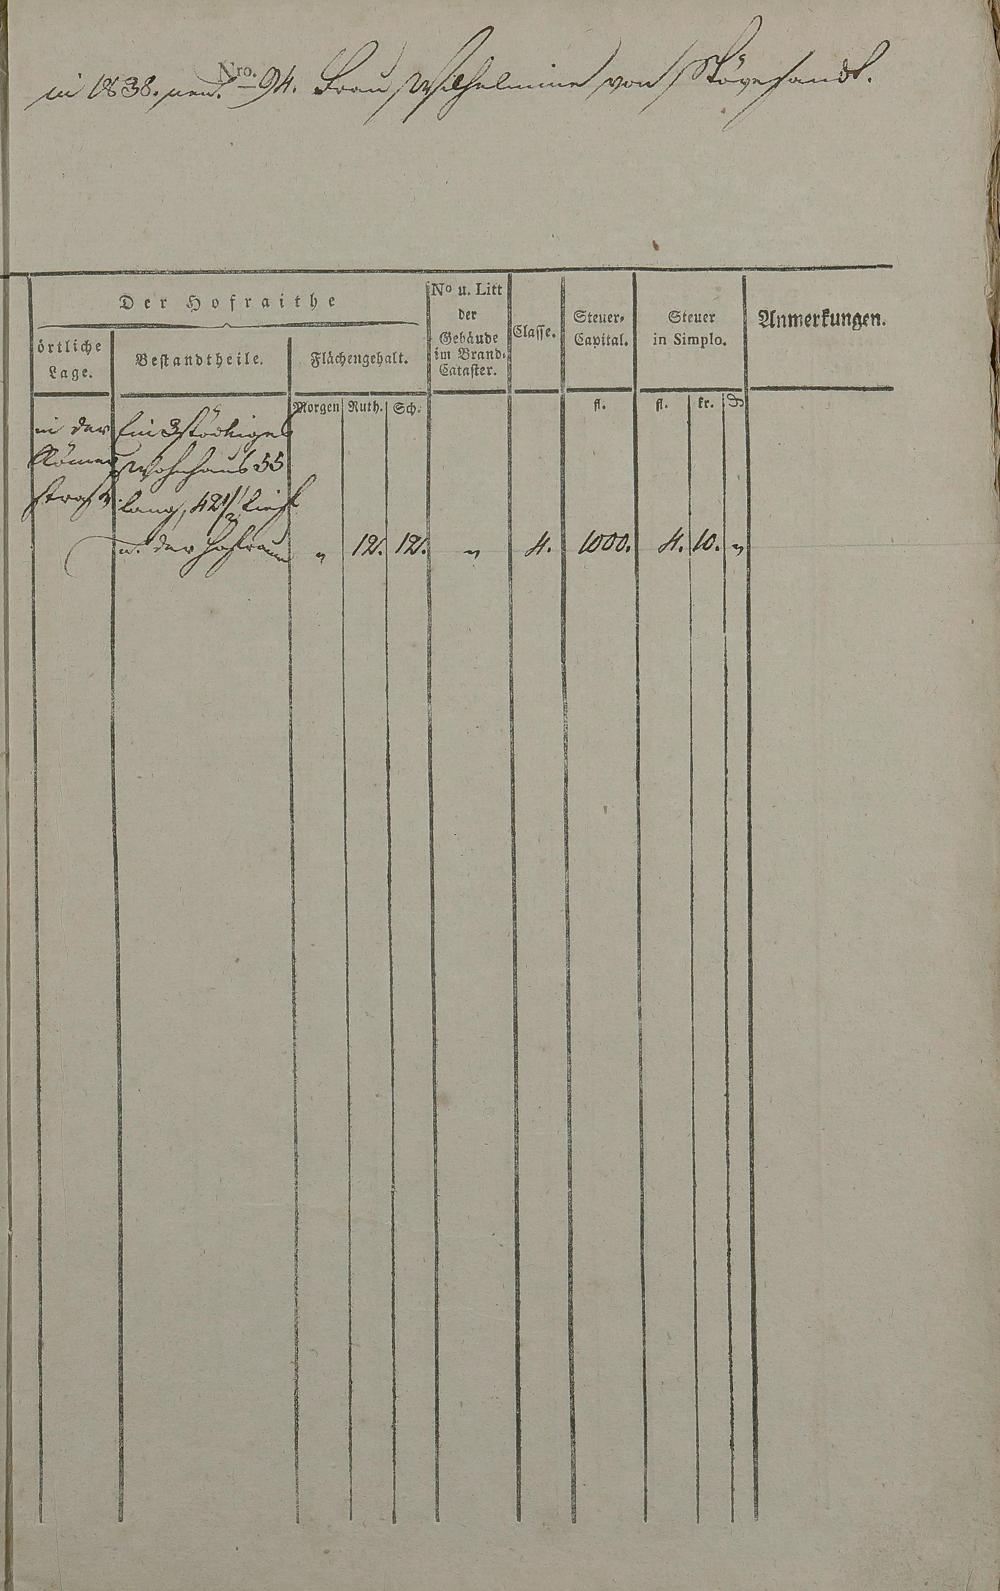 in 1838. neu. Nro. 94. Frau Wilhelmine von Stövesandt.
Der Hofraithe
örtliche
Lage.
Bestandtheile.
Flächengehalt.
No u. Litt
der
Gebäude
im Brand-
Cataster.
Classe.
Steuer-
Capital.
Steuer
in Simplo.
Anmerkungen.
Morgen Ruth. Sch. fl. fl. kr. ₰
in der Ein 3stöckiges
Römer Wohnhaus 55
straße lang, 42 1/2 tief
u. der Hofraum „ 12. 12. „ 4. 1000. 4. 10. „